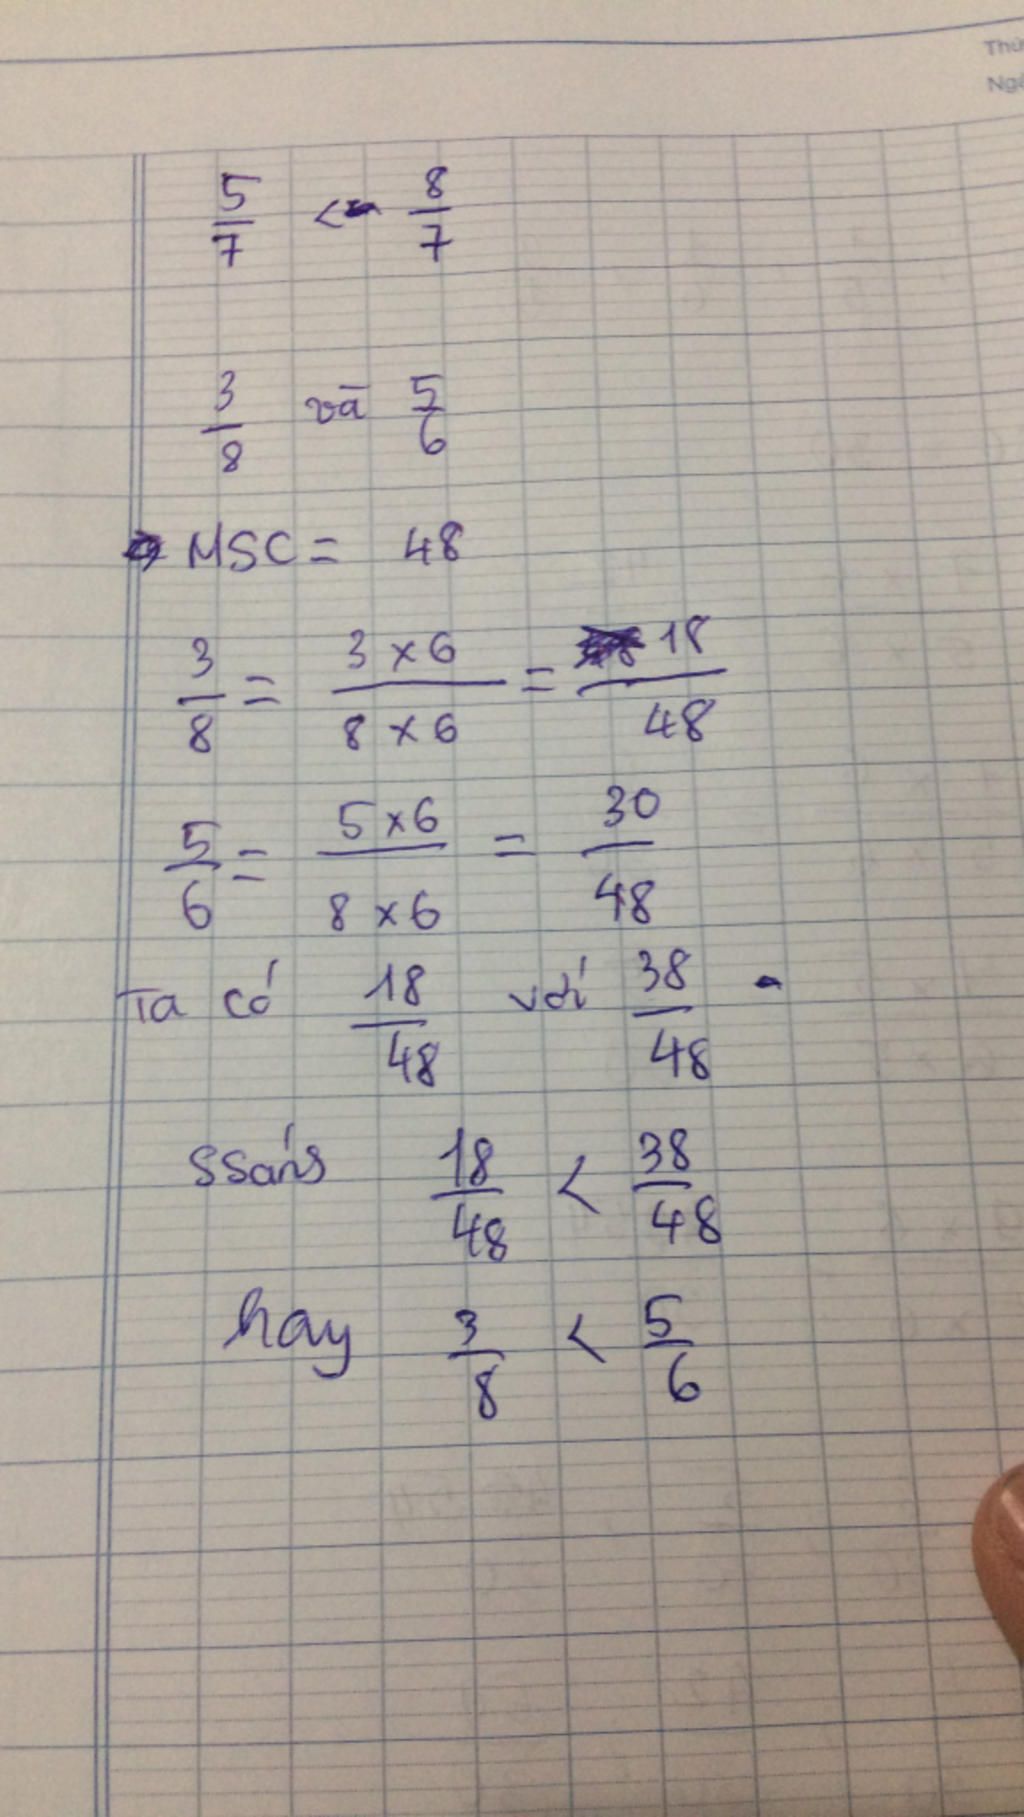 Thứ
Ngà
5/7 < 8/7
3/8 và 5/6
MSC = 48
3/8 = 3 x 6 / 8 x 6 = 18/48
5/6 = 5 x 6 / 8 x 6 = 30/48
Ta có 18/48 với 38/48
18/48 < 38/48
hay 3/8 < 5/6